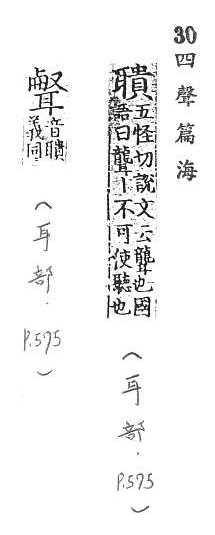 30四聲篇海
聵
五怪切說文云聾也國
語曰聾丨不可使聽也
(耳部.P.575)
音聵
義同
(耳部.P.575)